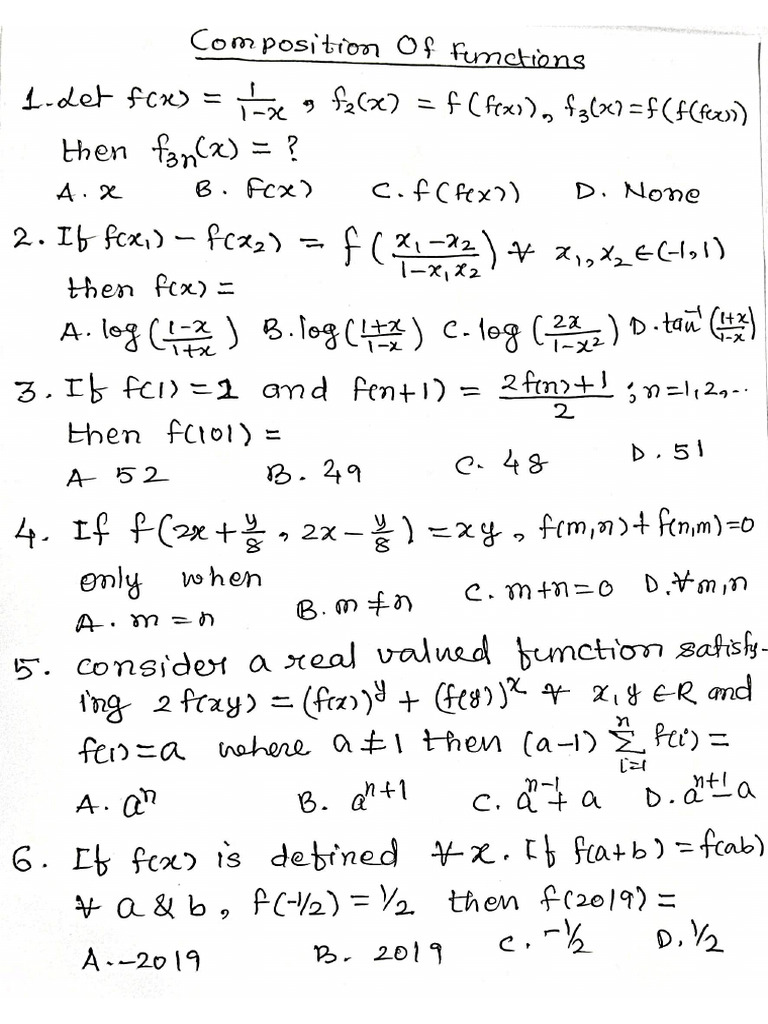 Composition Of Functions
1. Let f(x) = 1/(1-x) , f₂(x) = f(f(x)), f₃(x) = f(f(f(x)))
then f₃ₙ(x) = ?
A. x B. f(x) C. f(f(x)) D. None
2. If f(x₁) - f(x₂) = f((x₁-x₂)/(1-x₁x₂)) ∀ x₁, x₂ ∈ (-1, 1)
then f(x) =
A. log((1-x)/(1+x)) B. log((1+x)/(1-x)) C. log(2x/(1-x²)) D. tan⁻¹((1+x)/(1-x))
3. If f(1) = 1 and f(n+1) = (2f(n)+1)/2 ; n=1,2,..
then f(101) =
A 52 B. 49 C. 48 D. 51
4. If f(2x + y/8 , 2x - y/8) = xy , f(m,n) + f(n,m) = 0
only when
A. m = n B. m ≠ n C. m+n=0 D. ∀ m,n
5. Consider a real valued function satisfy-
ing 2f(xy) = (f(x))^y + (f(y))^x ∀ x, y ∈ R and
f(1) = a where a ≠ 1 then (a-1) ∑_{i=1}^{n} f(i) =
A. aⁿ B. aⁿ⁺¹ C. aⁿ⁻¹ + a D. aⁿ⁺¹ - a
6. If f(x) is defined ∀ x. If f(a+b) = f(ab)
∀ a & b, f(-1/2) = 1/2 then f(2019) =
A. -2019 B. 2019 C. -1/2 D. 1/2